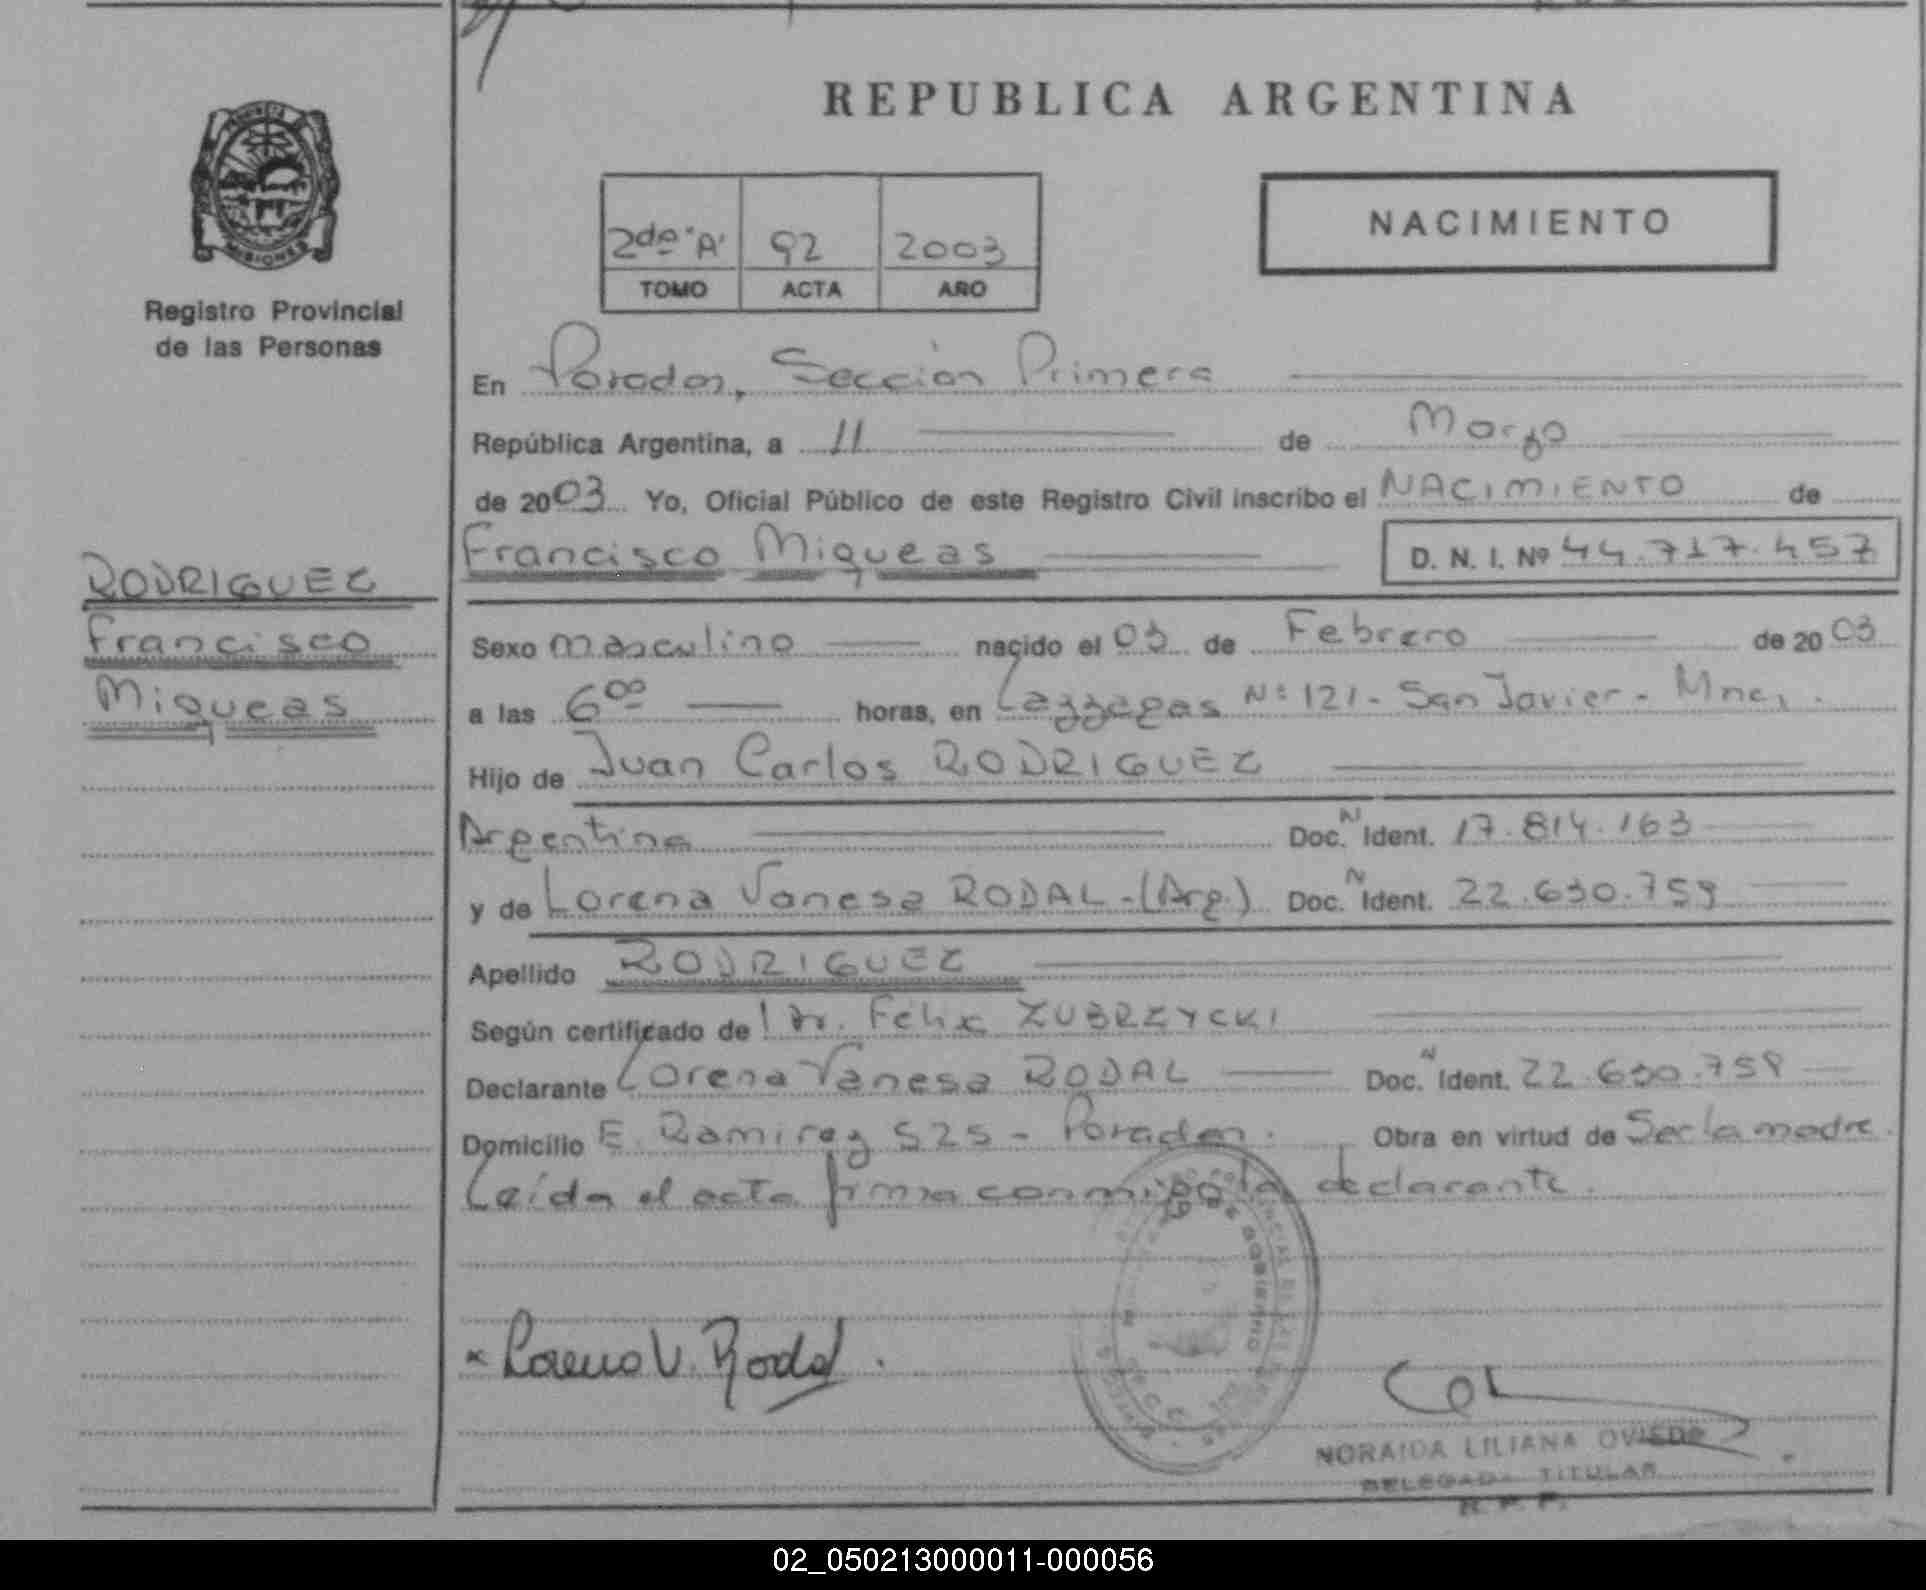 REPUBLICA ARGENTINA
MISIONES
Registro Provincial
de las Personas
2do "A" 92 2003
TOMO ACTA AÑO
NACIMIENTO
En Posadas, Sección Primera
República Argentina, a 11 de Marzo
de 2003 Yo, Oficial Público de este Registro Civil inscribo el NACIMIENTO de
Francisco Miqueas D. N. I. Nº 44.717.457
RODRIGUEZ
Francisco
Miqueas
Sexo masculino nacido el 03 de Febrero de 2003
a las 6 00 horas, en Nº 121 - San Javier - Mnes.
Hijo de Juan Carlos RODRIGUEZ
Argentino Doc. N Ident. 17.814.163
y de Lorena Vanesa RODAL - (Arg.) Doc. N Ident. 22.630.759
Apellido RODRIGUEZ
Según certificado de Dr. Felix ZUBRZYCKI
Declarante Lorena Vanesa RODAL Doc. N Ident. 22.630.759
Domicilio E. Ramirez 525 - Posadas. Obra en virtud de Ser la madre.
Leída el acta firma conmigo la declarante.
x Lorena V. Rodal.
NORAIDA LILIANA OVIEDO
DELEGADA TITULAR
R. P. P.
02_050213000011-000056